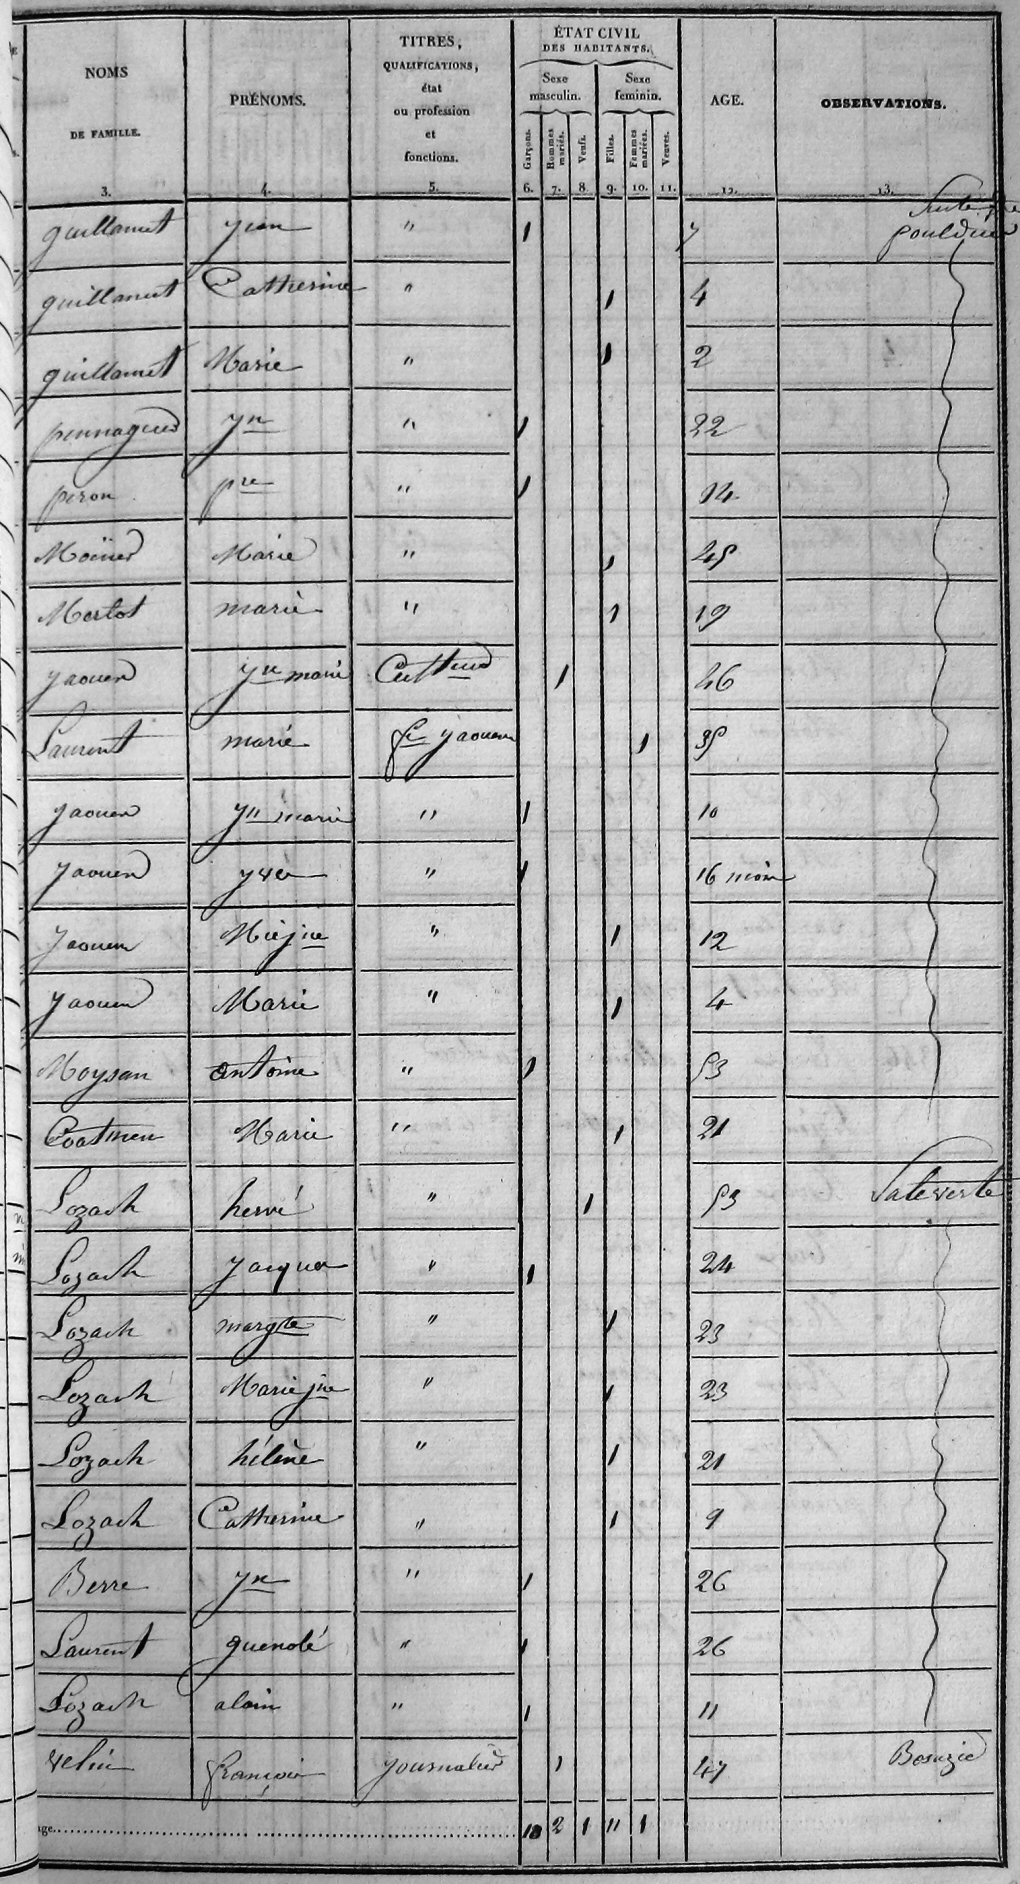 NOMS DE FAMILLE. PRÉNOMS. TITRES, QUALIFICATIONS, état ou profession et fonctions. ÉTAT CIVIL DES HABITANTS. AGE. OBSERVATIONS.
Sexe masculin. Sexe feminin.
Garçons. Hommes mariés. Veufs. Filles. Femmes mariées. Veuves.
3. 4. 5. 6. 7. 8. 9. 10. 11. 12. 13.
guillamet jean " 1 7 Suite
guillamet Catherine " 1 4
guillamet Marie " 1 2
yn " 1 22
peron pre " 1 14
Marie " 1 45
Mertot marie " 1 19
yaouen yn marie 1 46
Laurent marie fe yaouen 1 35
yaouen yn marie " 1 10
yaouen yves " 1 16 mois
yaouen Mie jne " 1 12
yaouen Marie " 1 4
Moysan antoine " 1 53
Coatmen Marie " 1 21
Lozach hervé " 1 53 Saleverte
Lozach jacques " 1 24
Lozach margte " 1 23
Lozach Marie jne " 1 23
Lozach hélène " 1 21
Lozach Catherine " 1 9
Berre yn " 1 26
Laurent guenolé " 1 26
Lozach alain " 1 11
françois journalier 1 47
age. 10 2 1 11 1